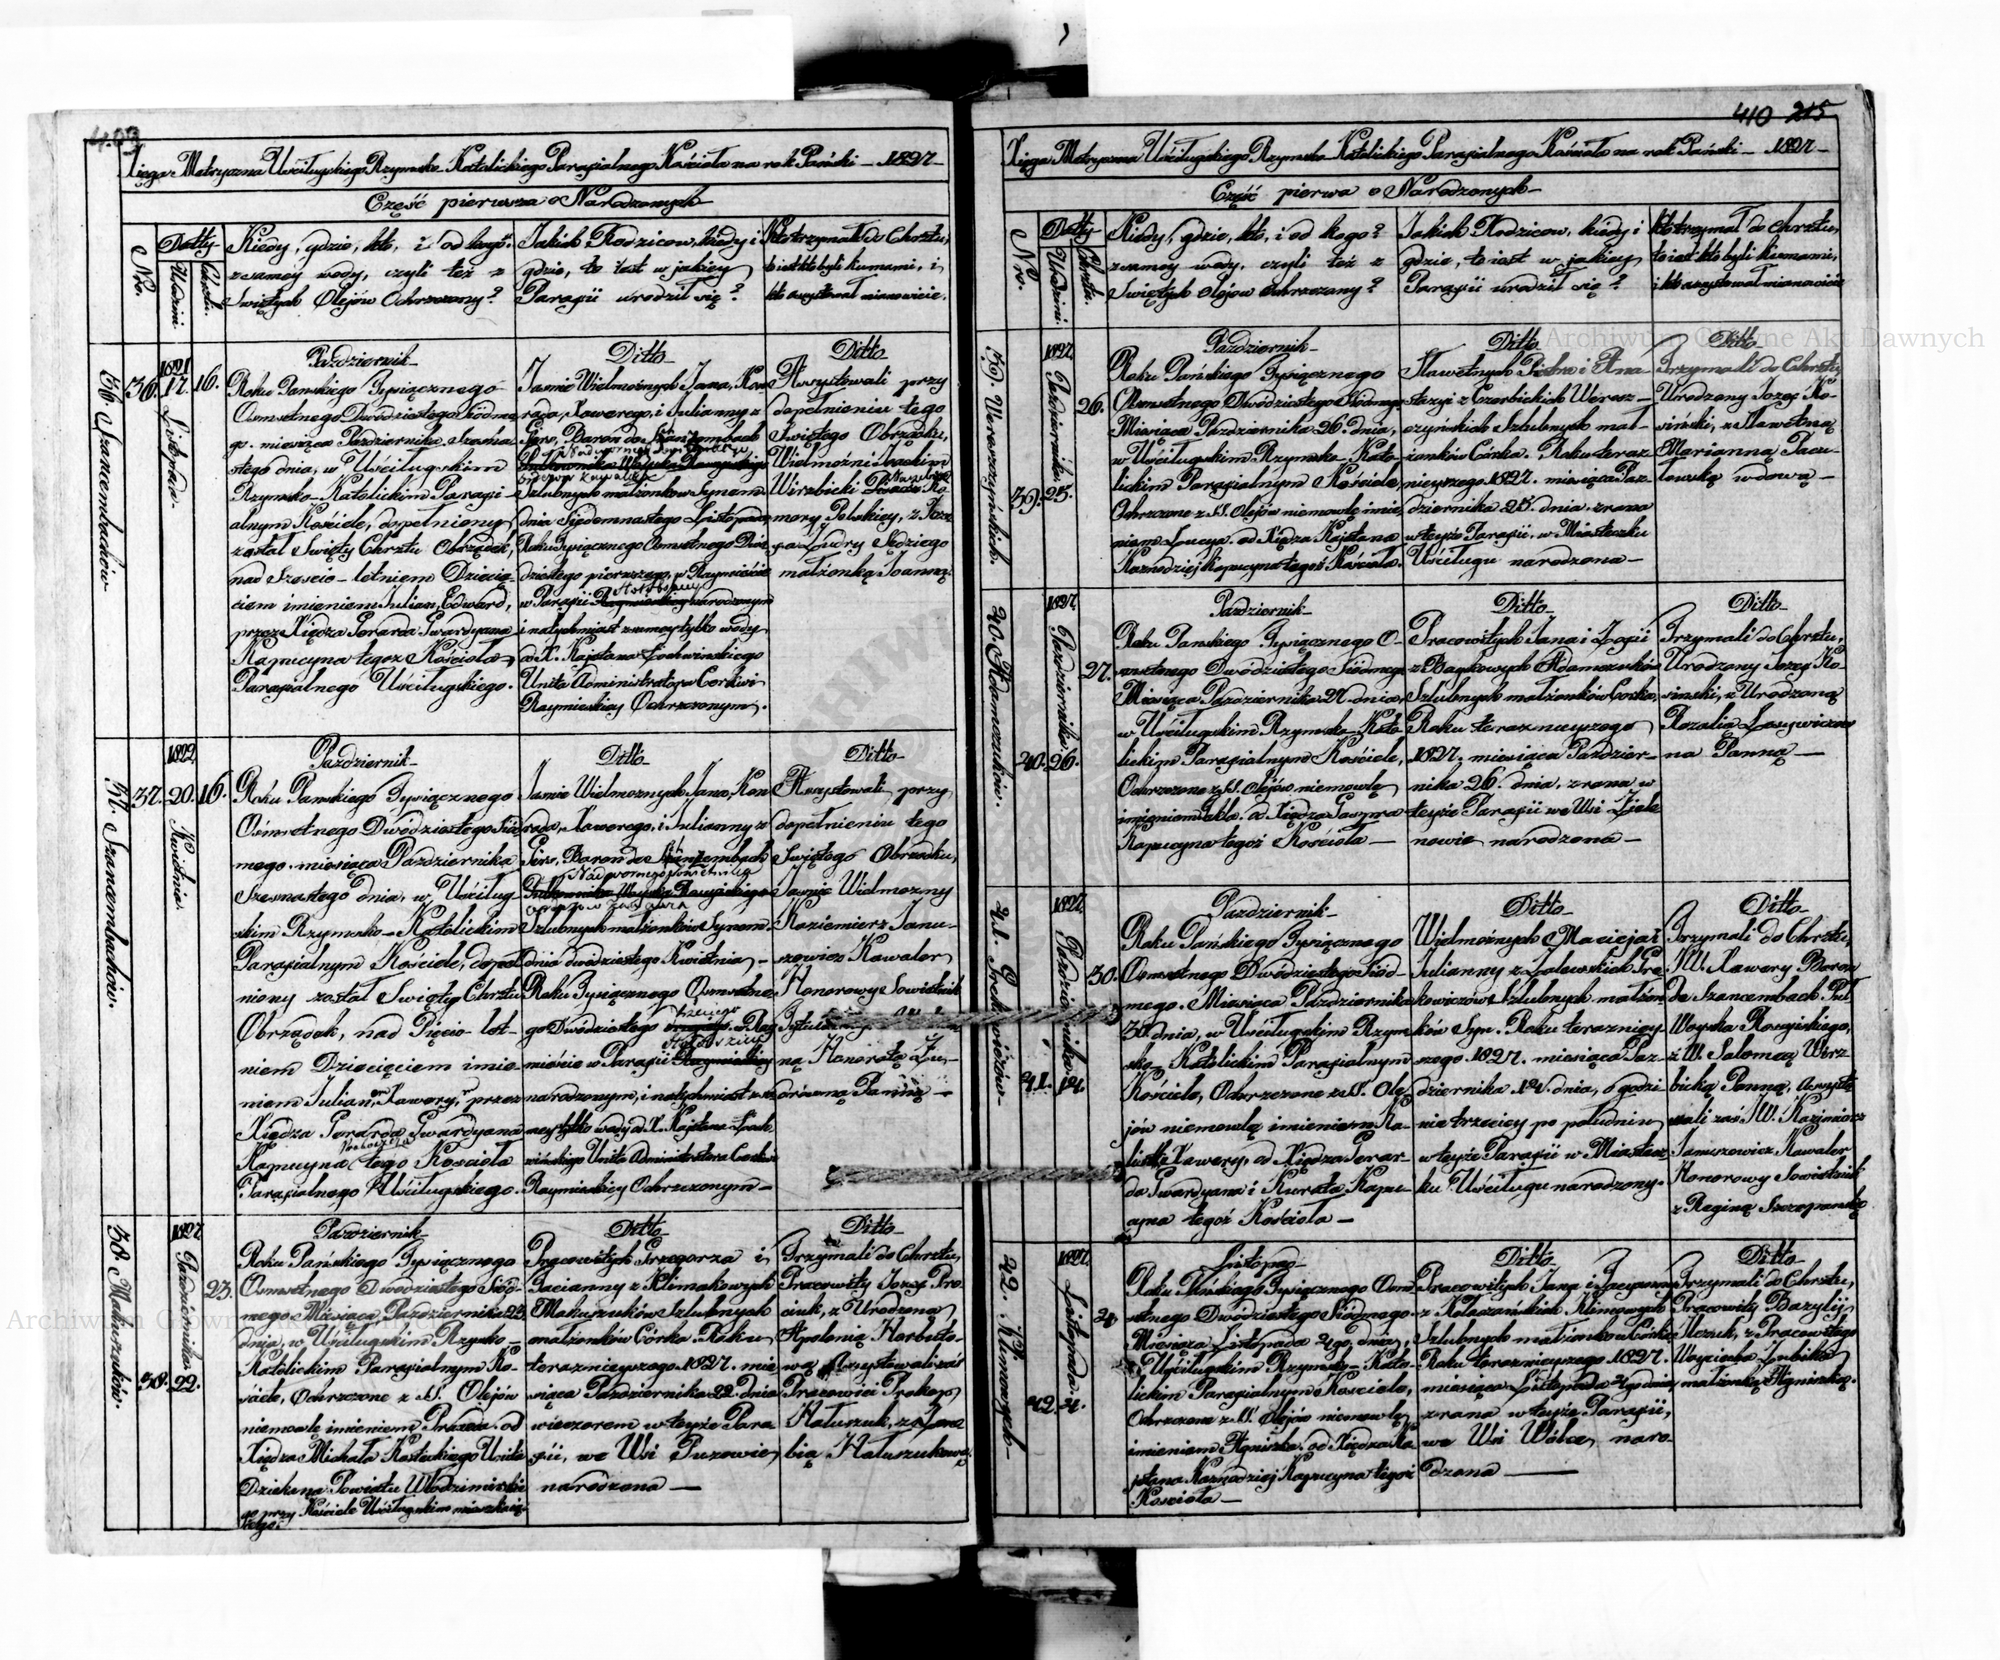 409
Xięga Metryczna Uściługskiego Rzymsko-Katolickiego Parafialnego Kościoła na rok Pański - 1827 -
Część pierwsza o Narodzonych
Nro.
Datty
Urodzin.
Chrztu.
Kiedy, gdzie, kto, i od kogo?
z samey wody, czyli też z
Świętych Olejów Ochrzczony?
Jakich Rodzicow, kiedy i
gdzie, to iest w jakiey
Parafii urodził się?
Kto trzymał do Chrztu,
to iest kto byli kumami, i
kto assystował mianowicie.
36. Szancembachów
36.
1821
17. Listopada
16.
Październik
Roku Pańskiego Tysiącznego
Osmsetnego Dwódziestego Siódme-
go. miesiąca Października Szesna-
stego dnia, w Uściługskim
Rzymsko-Katolickim Parafi-
alnym Kościele, dopełniony
został Święty Chrztu Obrządek,
nad Sześcio-letniem Dziecię-
ciem imieniem Julian, Edward,
przez Xiędza Gerarda Gwardyana
Kapucyna tegoż Kościoła
Parafialnego Uściługskiego.
Ditto
Jaśnie Wielmożnych Jana, Kon-
rada, Xawerego, i Julianny z
Giers, Baron de Szanzembach
Szlubnych małżonkow Synem
dnia Siedemnastego Listopada
Roku Tysiącznego Osmsetnego Dwó-
dziestego pierwszego, w Raymieście
w Parafii narodzonym
i natychmiast z samey tylko wody
od X. Kajetana Lochwinskiego
Unita Administratora Cerkwi
Raymieskiey Ochrzczonym.
Ditto
Assystowali przy
dopełnieniu tego
Świętego Obrządku,
Wielmożni Joachim
Wirzbicki Ko-
mory Polskiey, z Józe-
fa Zudry Sędziego
małżonką Joanną.
37. Szancembachow.
37.
1822
20. Kwietnia.
16.
Październik
Roku Pańskiego Tysiącznego
Osmsetnego Dwódziestego Siód-
mego. miesiąca Października
Szesnastego dnia, w Uściług-
skim Rzymsko-Katolickim
Parafialnym Kościele, dopeł-
niony został Święty Chrztu
Obrządek, nad Pięcio-let-
niem Dziecięciem imie-
niem Julian, Xawery, przez
Xiędza Gerarda Gwardyana
Kapucyna tego Kościoła
Parafialnego Uściługskiego.
Ditto
Jaśnie Wielmożnych Jana, Kon-
rada, Xawerego, i Julianny z
Giers, Baron de Szanzembach
Nadwornego Sowietnika
Szlubnych małżonków Synem
dnia dwódziestego Kwietnia
Roku Tysiącznego Osmsetne-
go Dwódziestego trzeciego w Ray-
mieście w Parafii
narodzonym, i natychmiast z sa-
mey tylko wody od X. Kajetana Loch-
wińskiego Unita Administratora Cerkwi
Raymieskiey Ochrzczonym
Ditto
Assystowali przy
dopełnieniu tego
Świętego Obrządku,
Jaśnie Wielmożny
Kazimierz Janu-
szewicz Kawaler
Honorowy Sowietnik
Tytularny
ną Honoratą
Panną
38 Makuszuków.
38.
1827
Października
22.
23.
Październik
Roku Pańskiego Tysiącznego
Osmsetnego Dwódziestego Siód-
mego Miesiąca Października 23.
dnia, w Uściługskim Rzymsko-
Katolickim Parafialnym Ko-
ściele, Ochrzczone z SS. Olejów
niemowlę imieniem Praxeda. od
Xiędza Michała Unita
Dziekana Powiatu Włodzimirskie-
go przy Kościele Uściługskim mieszkają-
cego.
Ditto
Pracowitych Grzegorza i
Tacianny z Klimakowych
Makuszuków Szlubnych
małżonków Córka. Roku
teraznieyszego 1827. mie-
siąca Października 22. dnia
wieczorem w teyże Para-
fii, we Wsi Puzowie
narodzona
Ditto
Trzymali do Chrztu,
Pracowity Jozef Pro-
ciuk, z Urodzoną
Apolonią Horbato-
wą, Assystowali zaś
Pracowici Prokop
Hałuszuk, z Zeno-
bią Hałuszukową.
410 215
Xięga Metryczna Uściługskiego Rzymsko-Katolickiego Parafialnego Kościoła na rok Pański - 1827 -
Część pierwa o Narodzonych
Nro.
Datty
Urodzin.
Chrztu.
Kiedy, gdzie, kto, i od kogo?
z samey wody, czyli też z
Świętych Olejów Ochrzczony?
Jakich Rodzicow, kiedy i
gdzie, to iest w jakiey
Parafii urodził się?
kto trzymał do Chrztu,
to iest kto byli kumami,
i kto assystował mianowicie
39. Wereszczyńskich.
39.
1827.
Października
25.
26.
Październik
Roku Pańskiego Tysiącznego
Osmsetnego Dwódziestego Siódmego
Miesiąca Października 26. dnia,
w Uściługskim Rzymsko-Kato-
lickim Parafialnym Kościele
Ochrzczone z SS. Olejów niemowlę imie-
niem Łucya. od Xiędza Kajetana
Kaznodziej Kapucyna tegoż Kościoła.
Ditto
Sławetnych Piotra i Ana-
stazyi z Czerbickich Weresz-
czyńskich Szlubnych mał-
żonków Córka. Roku teraz-
nieyszego 1827. miesiąca Paź-
dziernika 25. dnia z rana
w teyże Parafii, w Miasteczku
Uściługu narodzona
Ditto
Trzymali do Chrztu,
Urodzony Jozef Ko-
siński, z Sławetną
Marianną Pacu-
łowską wdową
40. Adamczuków.
40.
1827.
Października
26.
27.
Październik
Roku Pańskiego Tysiącznego O-
smsetnego Dwódziestego Siódmego
Miesiąca Października 27. dnia,
w Uściługskim Rzymsko-Kato-
lickim Parafialnym Kościele,
Ochrzczone z SS. Olejów niemowlę
imieniem Tekla. od Xiędza
Kapucyna tegoż Kościoła
Ditto
Pracowitych Jana i Zofii
z Baykowych Adamczuków
Szlubnych małżonków Córka,
Roku teraznieyszego
1827. miesiąca Paździer-
nika 26. dnia, z rana w
teyże Parafii we Wsi Ziele-
nowie narodzona
Ditto
Trzymali do Chrztu,
Urodzony Jozef Ko-
sinski, z Urodzoną
Rozalią
na Panną
41.
1827.
Października
14.
30.
Październik
Roku Pańskiego Tysiącznego
Osmsetnego Dwódziestego Siód-
mego. Miesiąca Października
30. dnia, w Uściługskim Rzym-
sko-Katolickim Parafialnym
Kościele, Ochrzczone z SS. Ole-
jów niemowlę imieniem Ka-
lixt Xawery, od Xiędza Gerar-
da Gwardyana i Kurata Kapu-
cyna tegoż Kościoła
Ditto
Wielmożnych Macieja i
Julianny z Zalewskich Gra-
kowiczow Szlubnych małżon-
ków Syn. Roku terazniey-
szego 1827. miesiąca Paź-
dziernika 14. dnia, o godzi-
nie trzeciey po południu
w teyże Parafii w Miastecz-
ku Uściługu narodzony.
Ditto
Trzymali do Chrztu,
JW. Xawery Baron
de Szancembach
Woyska Rossyiskiego,
z W. Salomeą Wirz-
bicką Panną, Assysto-
wali zaś JW. Kazimierz
Januszewicz Kawaler
Honorowy Sowietnik
z Reginą Szczepanską
42. Klimowych
42.
1827.
Listopada
4.
Listopad
Roku Pańskiego Tysiącznego Osm-
setnego Dwódziestego Siódmego
Miesiąca Listopada 4go dnia,
w Uściługskim Rzymsko-Kato-
lickim Parafialnym Kościele,
Ochrzczone z SS. Olejów niemowlę
imieniem Agnieszka. od Xiędza Ka-
jetana Kaznodziej Kapucyna tegoż
Kościoła
Ditto
Pracowitych Jana i Tacyanny
z Klimowych
Szlubnych małżonków Córka
Roku teraznieyszego 1827.
miesiąca Listopada 4go dnia,
z rana w teyże Parafii,
we Wsi Wólce, naro-
dzona
Ditto
Trzymali do Chrztu,
Pracowity Bazylij
z Pracowitego
Woyciecha
małżonką Agnieszką.
Archiwum Główne Akt Dawnych